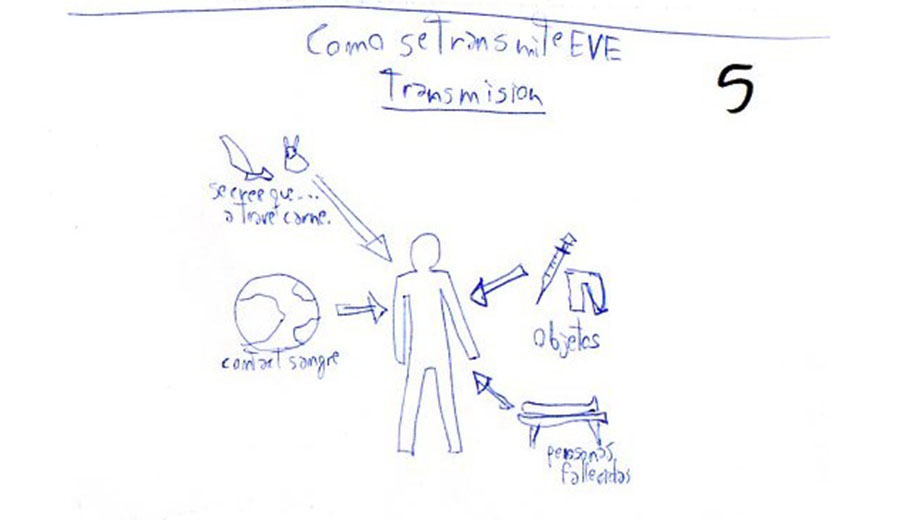 Como se transmite EVE
Transmision
5
se cree que...
a travé carne.
contact sangre
Objetos
personas
fallecidas